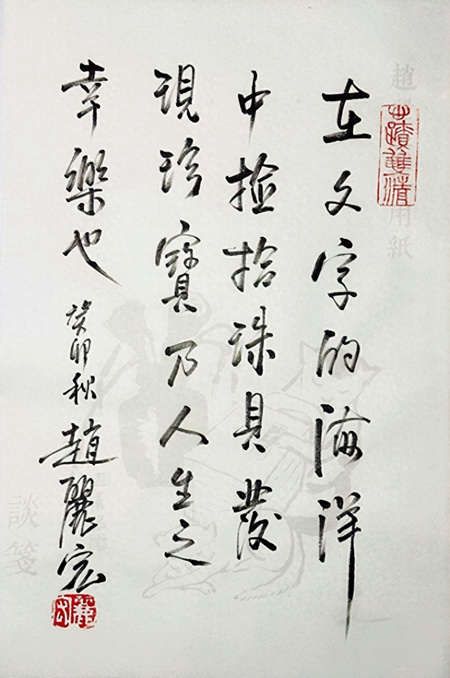 在文字的海洋
中撿拾珠貝發
現珍寶乃人生之
幸樂也
癸卯秋趙麗宏
趙
用紙
談箋